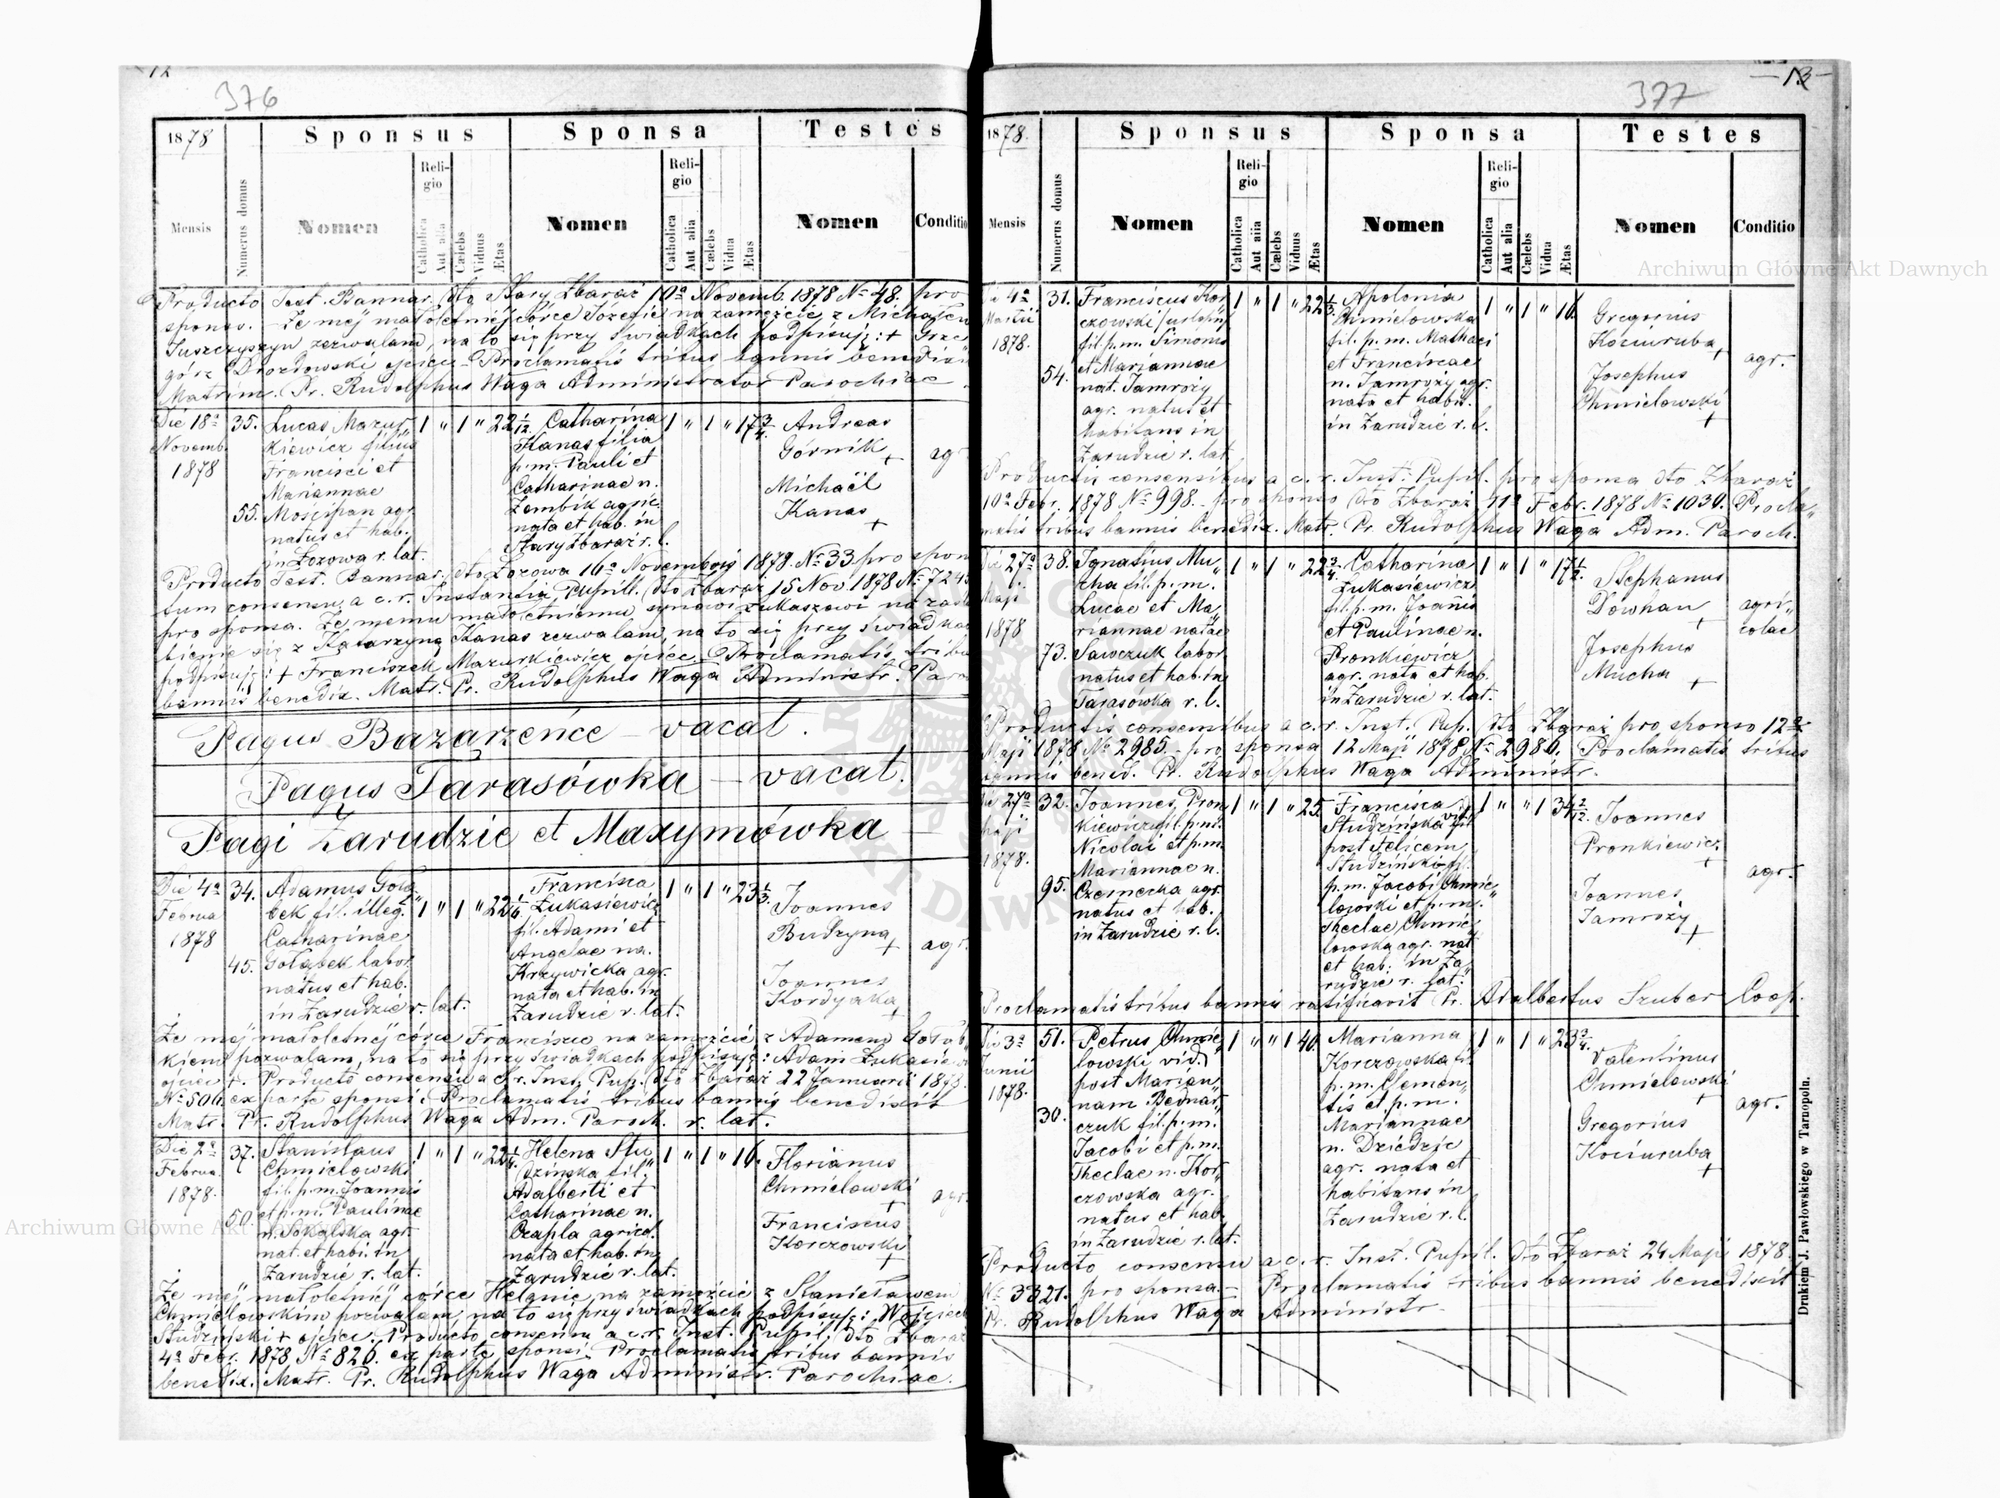 12
376
1878
Sponsus
Sponsa
Testes
Mensis
Numerus domus
Nomen
Religio
Catholica
Aut alia
Cælebs
Viduus
Ætas
Nomen
Religio
Catholica
Aut alia
Cælebs
Vidua
Ætas
Nomen
Conditio
Producto Test. Bannor. dto Stary Zbaraż 10a Novemb. 1878 No 48. pro
sponso. – Że mej małoletniej córce Józefie na zamęźcie z Michałem
Juszczyszyn zezwalam, na to się przy świadkach podpisuję: + Grze
górz Drozdowski ojciec – Proclamatis tribus bannis benedixit
Matrim. Pr. Rudolphus Waga Administrator Parochiae
Die 18a
Novemb.
1878
35.
55.
Lucas Mazur
kiewicz filius
Francisci et
Mariannae
Mościpan agr.
natus et hab.
in Łozowa r. lat.
1 " 1 " 22 1/12
Catharina
Kanas filia
p.m. Pauli et
Catharinae n.
Zembik agric.
nata et hab. in
Stary Zbaraż r. l.
1 " 1 " 17 3/4
Andreas
Górnik +
Michaël
Kanas +
agr
Producto Test. Bannor. dto Łozowa 16a Novembris 1878 No 33 pro spon
tum consensu a c.r. Instantia Pupill. dto Zbaraż 15 Nov. 1878 No 7245
pro sponsa. Że memu małoletniemu synowi Łukaszowi na zaślu
bienie się z Katarzyną Kanas zezwalam, na to się przy świadkach
podpisuję: + Franciszek Mazurkiewicz ojciec. Proclamatis tribus
bannis benedix. Matr. Pr. Rudolphus Waga Administr. Paro
Pagus Bazarzeńce – vacat.
Pagus Tarasówka – vacat.
Pagi Zarudzie et Maxymówka –
Die 4a
Februa
1878
34.
45.
Adamus Gołą
bek fil. illeg.
Catharinae
Gołąbek labor.
natus et hab.
in Zarudzie r. lat.
1 " 1 " 22
Francisca
Łukasiewicz
fil. Adami et
Angelae na.
Krzywicka agr.
nata et hab. in
Zarudzie r. lat.
1 " 1 " 23 1/3
Joannes
Budzyna +
Joannes
Kordyaka +
agr.
Że mej małoletniej córce Francisce na zamęźcie z Adamem Gołąb
kiem pozwalam, na to się przy świadkach podpisuję: Adam Łukasiewicz
ojciec +. Producto consensu a c.r. Inst. Pup. dto Zbaraż 22 Januarii 1878.
No 506. ex parte sponsi. Proclamatis tribus bannis benedixit
Matr. Pr. Rudolphus Waga Adm. Paroch. r. lat.
Die 2a
Februa
1878.
37.
50.
Stanislaus
Chmielowski
fil. p.m. Joannis
et p.m. Paulinae
n. Sokalska agr.
nat. et habi. in
Zarudzie r. lat.
1 " 1 " 22 1/4
Helena Stu
dzińska fil.
Adalberti et
Catharinae n.
Czapla agricol.
nata et hab. in
Zarudzie r. lat.
1 " 1 " 16.
Florianus
Chmielowski +
Franciscus
Korczowski +
agr.
Że mej małoletniej córce Helenie na zamęźcie z Stanisławem
Chmielowskim pozwalam, na to się przy świadkach podpisuję: Wojciech
Studziński + ojciec. Producto consensu a c.r. Inst. Pupil. dto Zbaraż
4a Febr. 1878 No 826. ex parte sponsi. Proclamatis tribus bannis
benedix. Matr. Pr. Rudolphus Waga Administr. Parochiae.
13
377
1878.
Sponsus
Sponsa
Testes
Mensis
Numerus domus
Nomen
Religio
Catholica
Aut alia
Cælebs
Viduus
Ætas
Nomen
Religio
Catholica
Aut alia
Cælebs
Vidua
Ætas
Nomen
Conditio
Die 4a
Martii
1878.
31.
54.
Franciscus Kor
czowski /urlopn/
fil. p.m. Simonis
et Mariannae
nat. Jamroży
agr. natus et
habitans in
Zarudzie r. lat.
1 " 1 " 22 1/3
Apolonia
Chmielowska
fil. p.m. Mathaei
et Franciscae
n. Jamroży agr.
nata et habit.
in Zarudzie r. l.
1 " 1 " 16.
Gregorius
Kociuruba +
Josephus
Chmielowski +
agr.
Productis consensibus a c.r. Inst. Pupil. pro sponsa dto Zbaraż
10a Febr. 1878 No 998. – pro sponso dto Zbaraż 11a Febr. 1878 No 1030. Procla„
matis tribus bannis benedix. Matr. Pr. Rudolphus Waga Adm. Paroch.
Die 27a
Maji
1878
38.
73.
Ignatius Mu„
cha fil. p.m.
Lucae et Ma„
riannae natae
Sawczuk labor.
natus et hab. in
Tarasówka r. l.
1 " 1 " 22 3/4
Catharina
Łukasiewicz
fil. p.m. Joañis
et Paulinae n.
Pronkiewicz
agr. nata et hab.
in Zarudzie r. lat.
1 " 1 " 17 1/2
Stephanus
Dowhan +
Josephus
Mucha +
agri„
colae
Productis consensibus a c.r. Inst. Pup. dto Zbaraż pro sponso 12a
Maji 1878 No 2985. – pro sponsa 12 Maji 1878 No 2986. Proclamatis tribus
bannis bened. Pr. Rudolphus Waga Administr.
Die 27a
Maji
1878.
32.
95.
Joannes Pron
kiewicz fil. p.m.
Nicolai et p.m.
Mariannae n.
Czernecka agr.
natus et hab.
in Zarudzie r. l.
1 " 1 " 25.
Francisca
Studzińska vid.
post Felicem
Studziński fil.
p.m. Jacobi Chmie„
lowski et p.m.
Theclae Chmie
lowska agr. nat
et hab. in Za
rudzie r. lat.
1 " " 1 34 2/12
Joannes
Pronkiewicz +
Joannes
Jamroży +
agr.
Proclamatis tribus bannis ratificavit Pr. Adalbertus Szuber Coop.
Die 3a
Junii
1878.
51.
30.
Petrus Chmie„
lowski vid.
post Marian„
nam Bednar„
czuk fil. p.m.
Jacobi et p.m.
Theclae n. Kor„
czowska agr.
natus et hab.
in Zarudzie r. lat.
1 " " 1 40.
Marianna
Korczowska fil.
p.m. Clemen„
tis et p.m.
Mariannae
n. Dziedzic
agr. nata et
habitans in
Zarudzie r. l.
1 " 1 " 23 3/4
Valentinus
Chmielowski +
Gregorius
Kociuruba +
agr.
Producto consensu a c.r. Inst. Pupil. dto Zbaraż 24 Maji 1878.
No 3321. pro sponsa. – Proclamatis tribus bannis benedixit
Pr. Rudolphus Waga Administr.
Drukiem J. Pawłowskiego w Tarnopolu.
Archiwum Główne Akt Dawnych
Archiwum Główne Akt